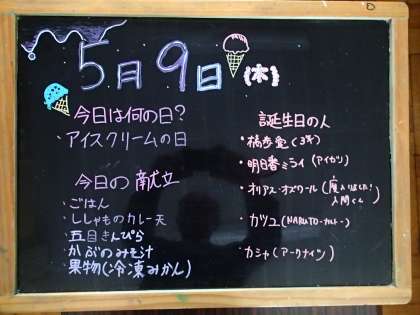 5月9日(木)
今日は何の日?
・アイスクリームの日
今日の献立
・ごはん
・ししゃものカレー天
・五目きんぴら
・かぶのみそ汁
・果物(冷凍みかん)
誕生日の人
・橘歩愛(3年)
・明日香ミライ(アイカツ)
・オリアス・オズワール(魔入りました!入間くん)
・カツユ(NARUTO-ナルト-)
・カシャ(アークナイツ)